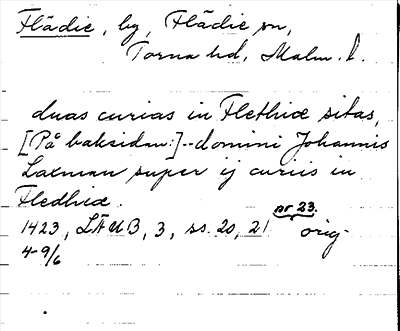 Flädie, by, Flädie sn,
Torna hd, Malm. l.
duas curias in Flethiæ sitas,
[På baksidan:]--domini Johannis
Laxman super ij curiis in
Fledhiæ.
nr 23.
1423, LÄUB, 3, ss. 20, 21 orig
4-9/6